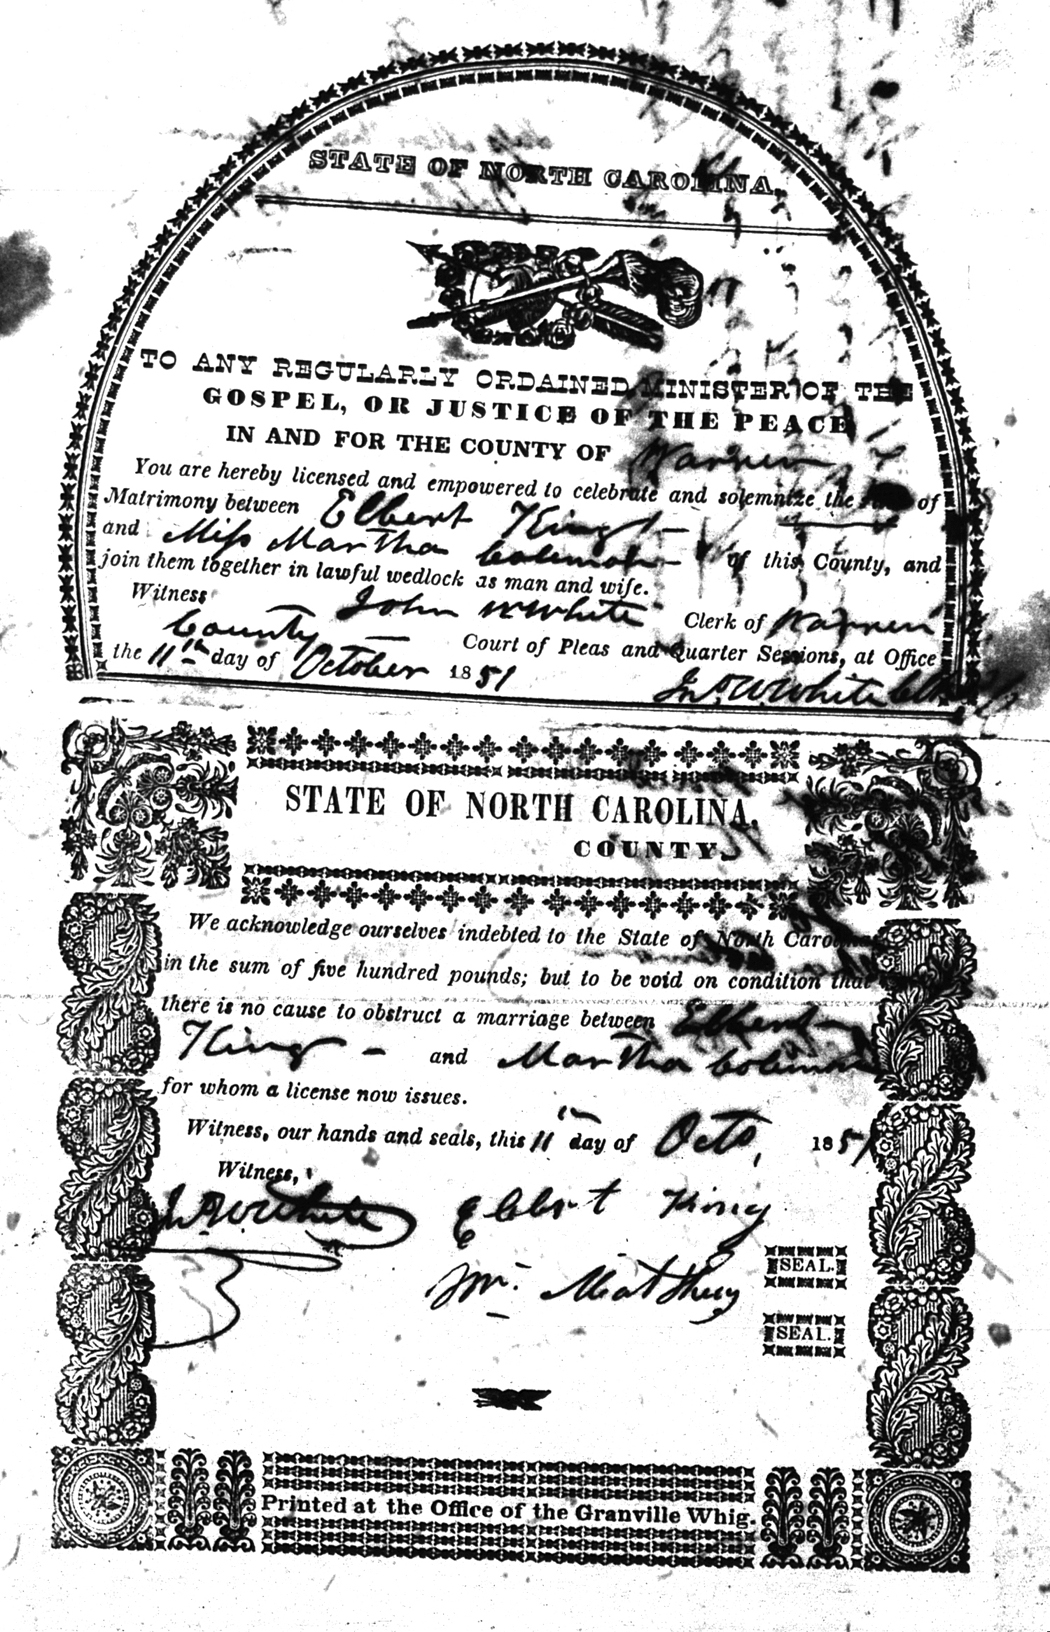 STATE OF NORTH CAROLINA,
TO ANY REGULARLY ORDAINED MINISTER OF THE
GOSPEL, OR JUSTICE OF THE PEACE
IN AND FOR THE COUNTY OF Warren
You are hereby licensed and empowered to celebrate and solemnize the of
Matrimony between Elbert King
and Miss Martha Coleman of this County, and
join them together in lawful wedlock as man and wife.
Witness John W White Clerk of Warren
County Court of Pleas and Quarter Sessions, at Office
the 11th day of October 1851
Jno. W. White Clk
STATE OF NORTH CAROLINA,
COUNTY.
We acknowledge ourselves indebted to the State of North Carolina
in the sum of five hundred pounds; but to be void on condition that
there is no cause to obstruct a marriage between Elbert
King and Martha Coleman
for whom a license now issues.
Witness, our hands and seals, this 11th day of Octo, 1851
Witness,
Jno W White Elbert King
SEAL.
SEAL.
Printed at the Office of the Granville Whig.